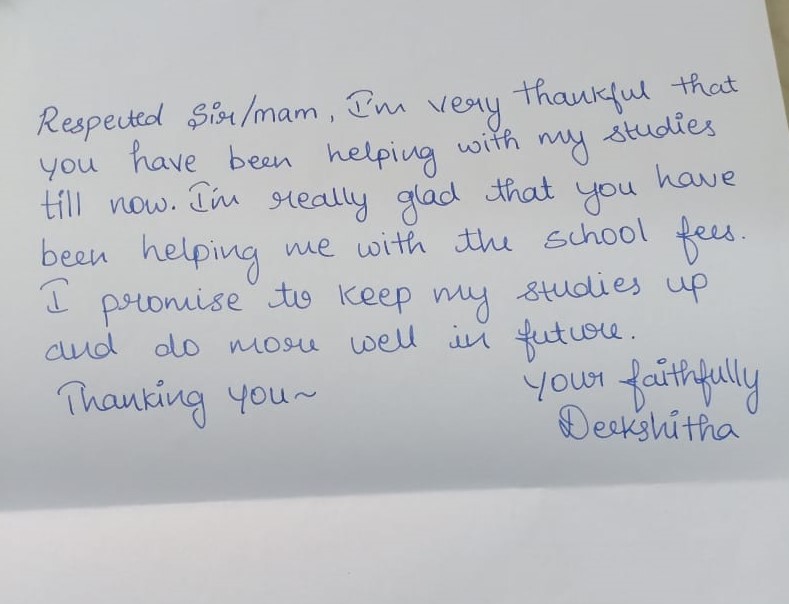 Respected Sir/mam, I'm very thankful that
you have been helping with my studies
till now. I'm really glad that you have
been helping me with the school fees.
I promise to keep my studies up
and do more well in future.
Thanking you~ your faithfully
Deekshitha